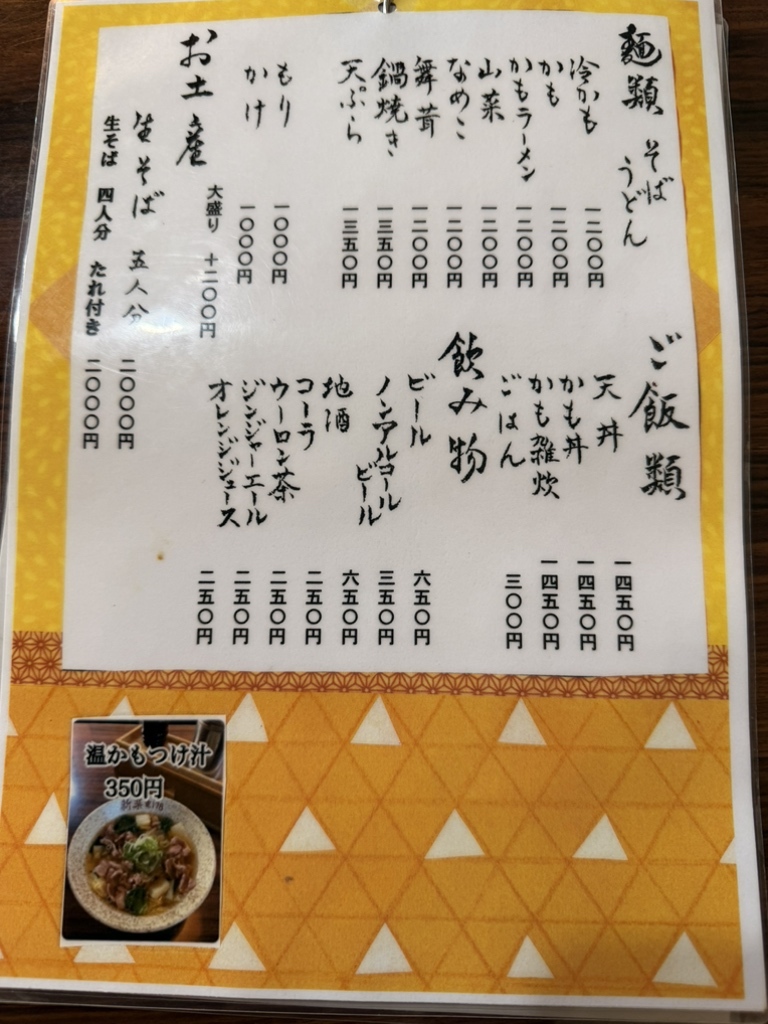 麺類 そば うどん
冷かも 一二〇〇円
かも 一二〇〇円
かもラーメン 一二〇〇円
山菜 一二〇〇円
なめこ 一二〇〇円
舞茸 一二〇〇円
鍋焼き 一三五〇円
天ぷら 一三五〇円
もり 一〇〇〇円
かけ 一〇〇〇円
大盛り +二〇〇円
お土産
生そば 五人分 二〇〇〇円
生そば 四人分 たれ付き 二〇〇〇円
ご飯類
天丼 一四五〇円
かも丼 一四五〇円
かも雑炊 一四五〇円
ごはん 三〇〇円
飲み物
ビール 六五〇円
ノンアルコールビール 三五〇円
地酒 六五〇円
コーラ 二五〇円
ウーロン茶 二五〇円
ジンジャーエール 二五〇円
オレンジジュース 二五〇円
温かもつけ汁
350円